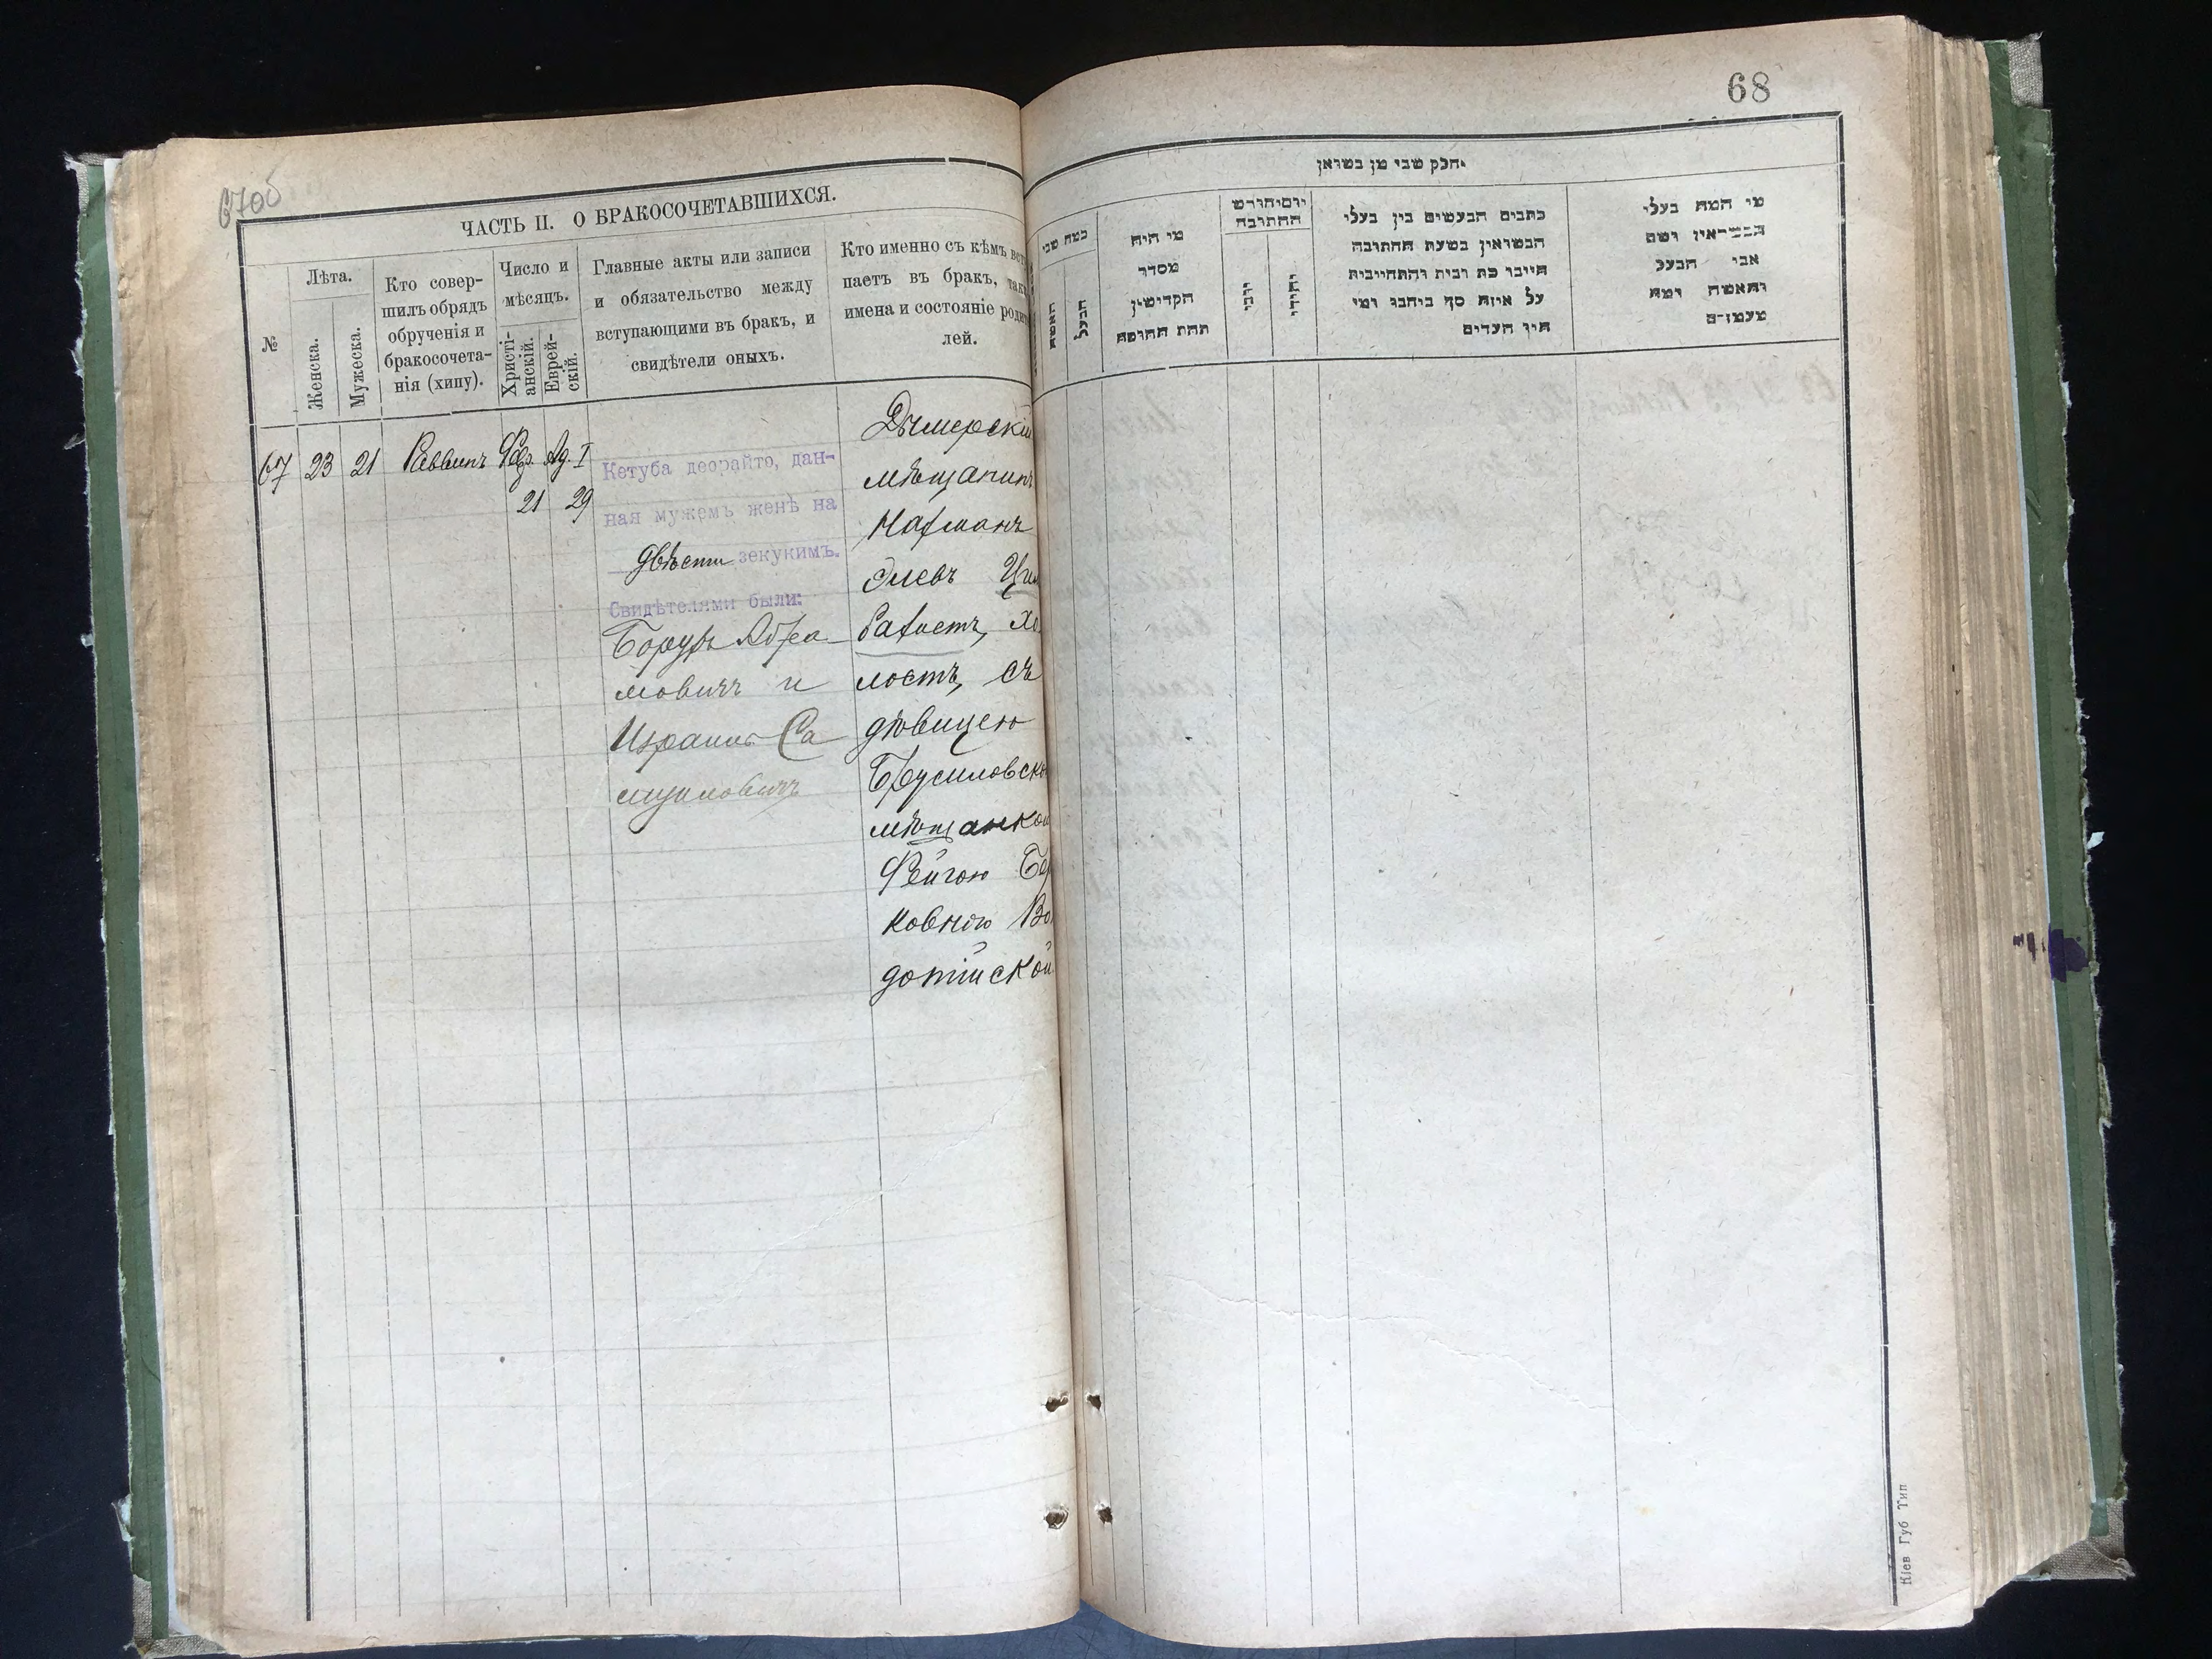 67об
ЧАСТЬ II. О БРАКОСОЧЕТАВШИХСЯ.
№
Лѣта.
Женска.
Мужеска.
Кто совер-
шилъ обрядъ
обрученія и
бракосочета-
нія (хипу).
Число и
мѣсяцъ.
Христі-
анскій.
Еврей-
скій.
Главные акты или записи
и обязательство между
вступающими въ бракъ, и
свидѣтели оныхъ.
Кто именно съ кѣмъ всту
паетъ въ бракъ, такж
имена и состояніе родит
лей.
67 23 21 Раввинъ Фев. Ад. I
21 29
Кетуба деорайто, дан-
ная мужемъ женѣ на
двѣсти зекукимъ.
Свидѣтелями были:
Борухъ Абра
мовичъ и
Израиль Са
муиловичъ
Дымерскій
мѣщанинъ
Нахманъ
Элевъ Цим
бахистъ, Хо
лостъ, съ
дѣвицею
Брусиловско
мѣщанкой
Фейгою Бер
ковною Во
дотійской
68
חלק שבי מן בשואן
כמה שבי
האשה
הבעל
מי היה
מסדר
הקדישין
תחת החופה
יום והורש
החתובה
ירבי
יהודי
כתבים הבעשים בין בעלי
הבשואין בשעת החתובה
חייבו כת ובית והתחייבית
על איזה סך ביתבו ומי
היו העדים
מי המה בעלי
הבשואין ושם
אבי הבעל
והאשה ומה
מעמדם
Кіев Губ Тип